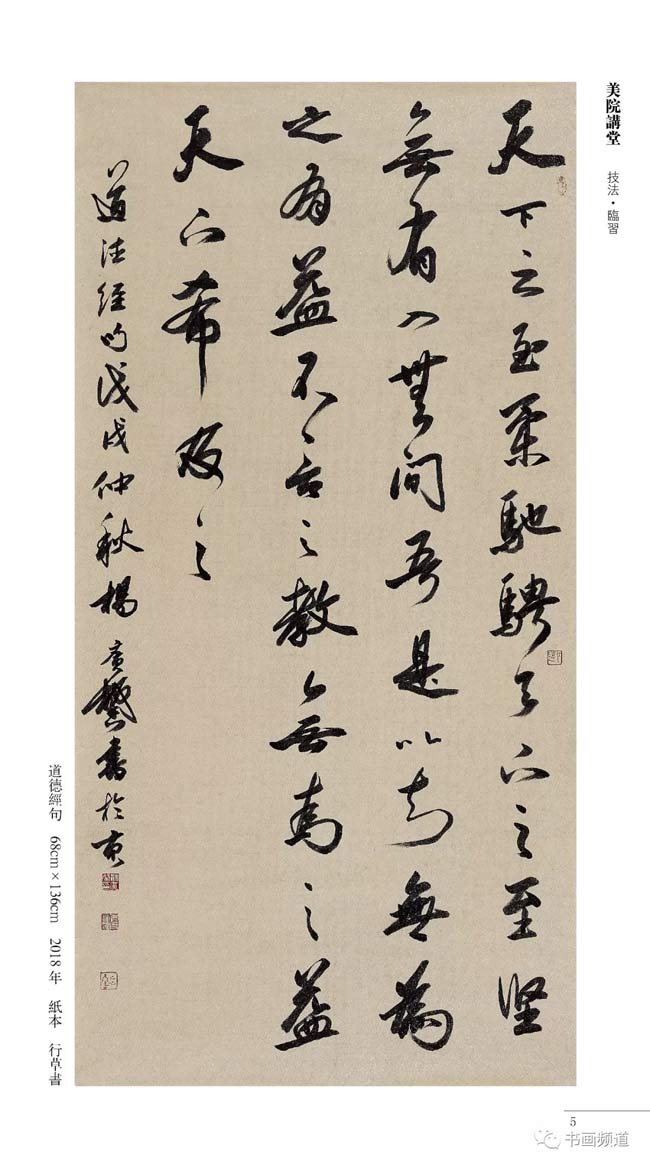 美院講堂
技法・臨習
天下之至柔馳騁天下之至堅
無有入無間吾是以知無為
之有益不言之教無為之益
天下希及之
道德經句戊戌仲秋楊廣馨書於京
道德經句 68cm×136cm 2018年 紙本 行草書
5
书画频道